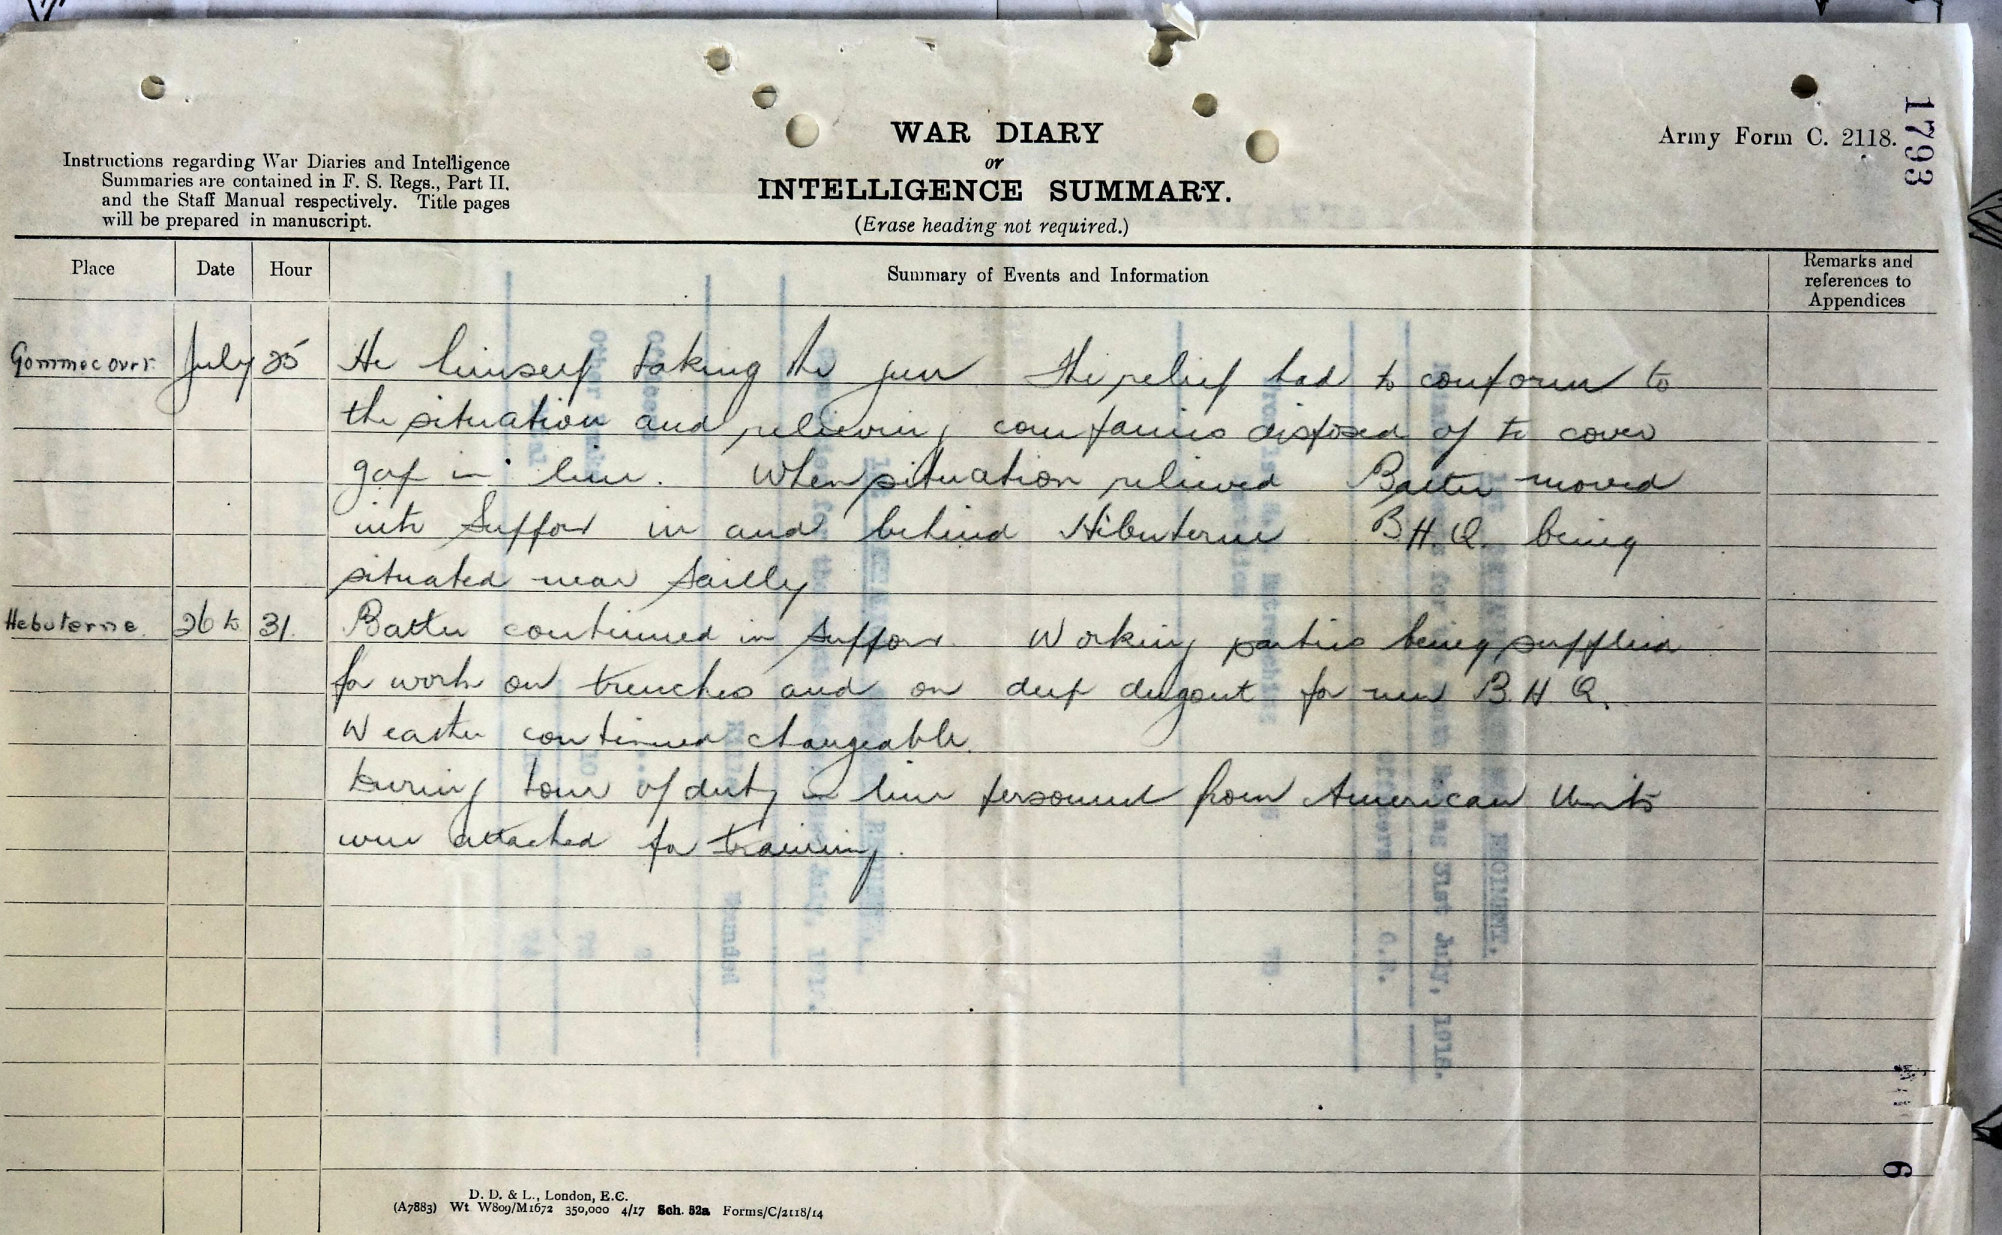 1793
WAR DIARY
or
INTELLIGENCE SUMMARY.
(Erase heading not required.)
Army Form C. 2118.
Instructions regarding War Diaries and Intelligence
Summaries are contained in F. S. Regs., Part II.
and the Staff Manual respectively. Title pages
will be prepared in manuscript.
Place Date Hour Summary of Events and Information Remarks and references to Appendices
Gommecourt July 25 He himself taking the gun The relief had to conform to
the situation and relieving companies disposed of to cover
gap in line. When situation relieved Battn moved
into Support in and behind Hebuterne B.H.Q. being
situated near Sailly
Hebuterne 26 to 31. Battn continued in Support. Working parties being supplied
for work on trenches and on deep dugout for new B.H.Q.
Weather continued changeable.
During tour of duty in line personnel from American Units
were attached for training.
D. D. & L., London, E.C.
(A7883) Wt W809/M1672 350,000 4/17 Sch. 52a Forms/C/2118/14
6